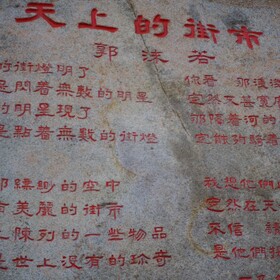 天上的街市
郭沫若
的街燈明了
是閃着無數的明星
的明星現了
是點着無數的街燈
縹緲的空中
美麗的街市
陳列的一些物品
是世上沒有的珍奇
你看 那淺
定然不甚寬
那隔着河的
定能夠騎
我想他們
定然在天
不信
是他們